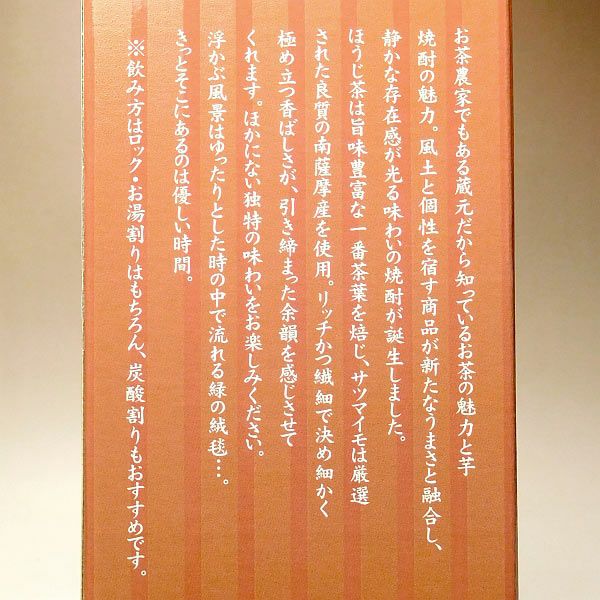 お茶農家でもある蔵元だから知っているお茶の魅力と芋
焼酎の魅力。風土と個性を宿す商品が新たなうまさと融合し、
静かな存在感が光る味わいの焼酎が誕生しました。
ほうじ茶は旨味豊富な一番茶葉を焙じ、サツマイモは厳選
された良質の南薩摩産を使用。リッチかつ繊細で決め細かく
極め立つ香ばしさが、引き締まった余韻を感じさせて
くれます。ほかにない独特の味わいをお楽しみください。
浮かぶ風景はゆったりとした時の中で流れる緑の絨毯…。
きっとそこにあるのは優しい時間。
※飲み方はロック・お湯割りはもちろん、炭酸割りもおすすめです。